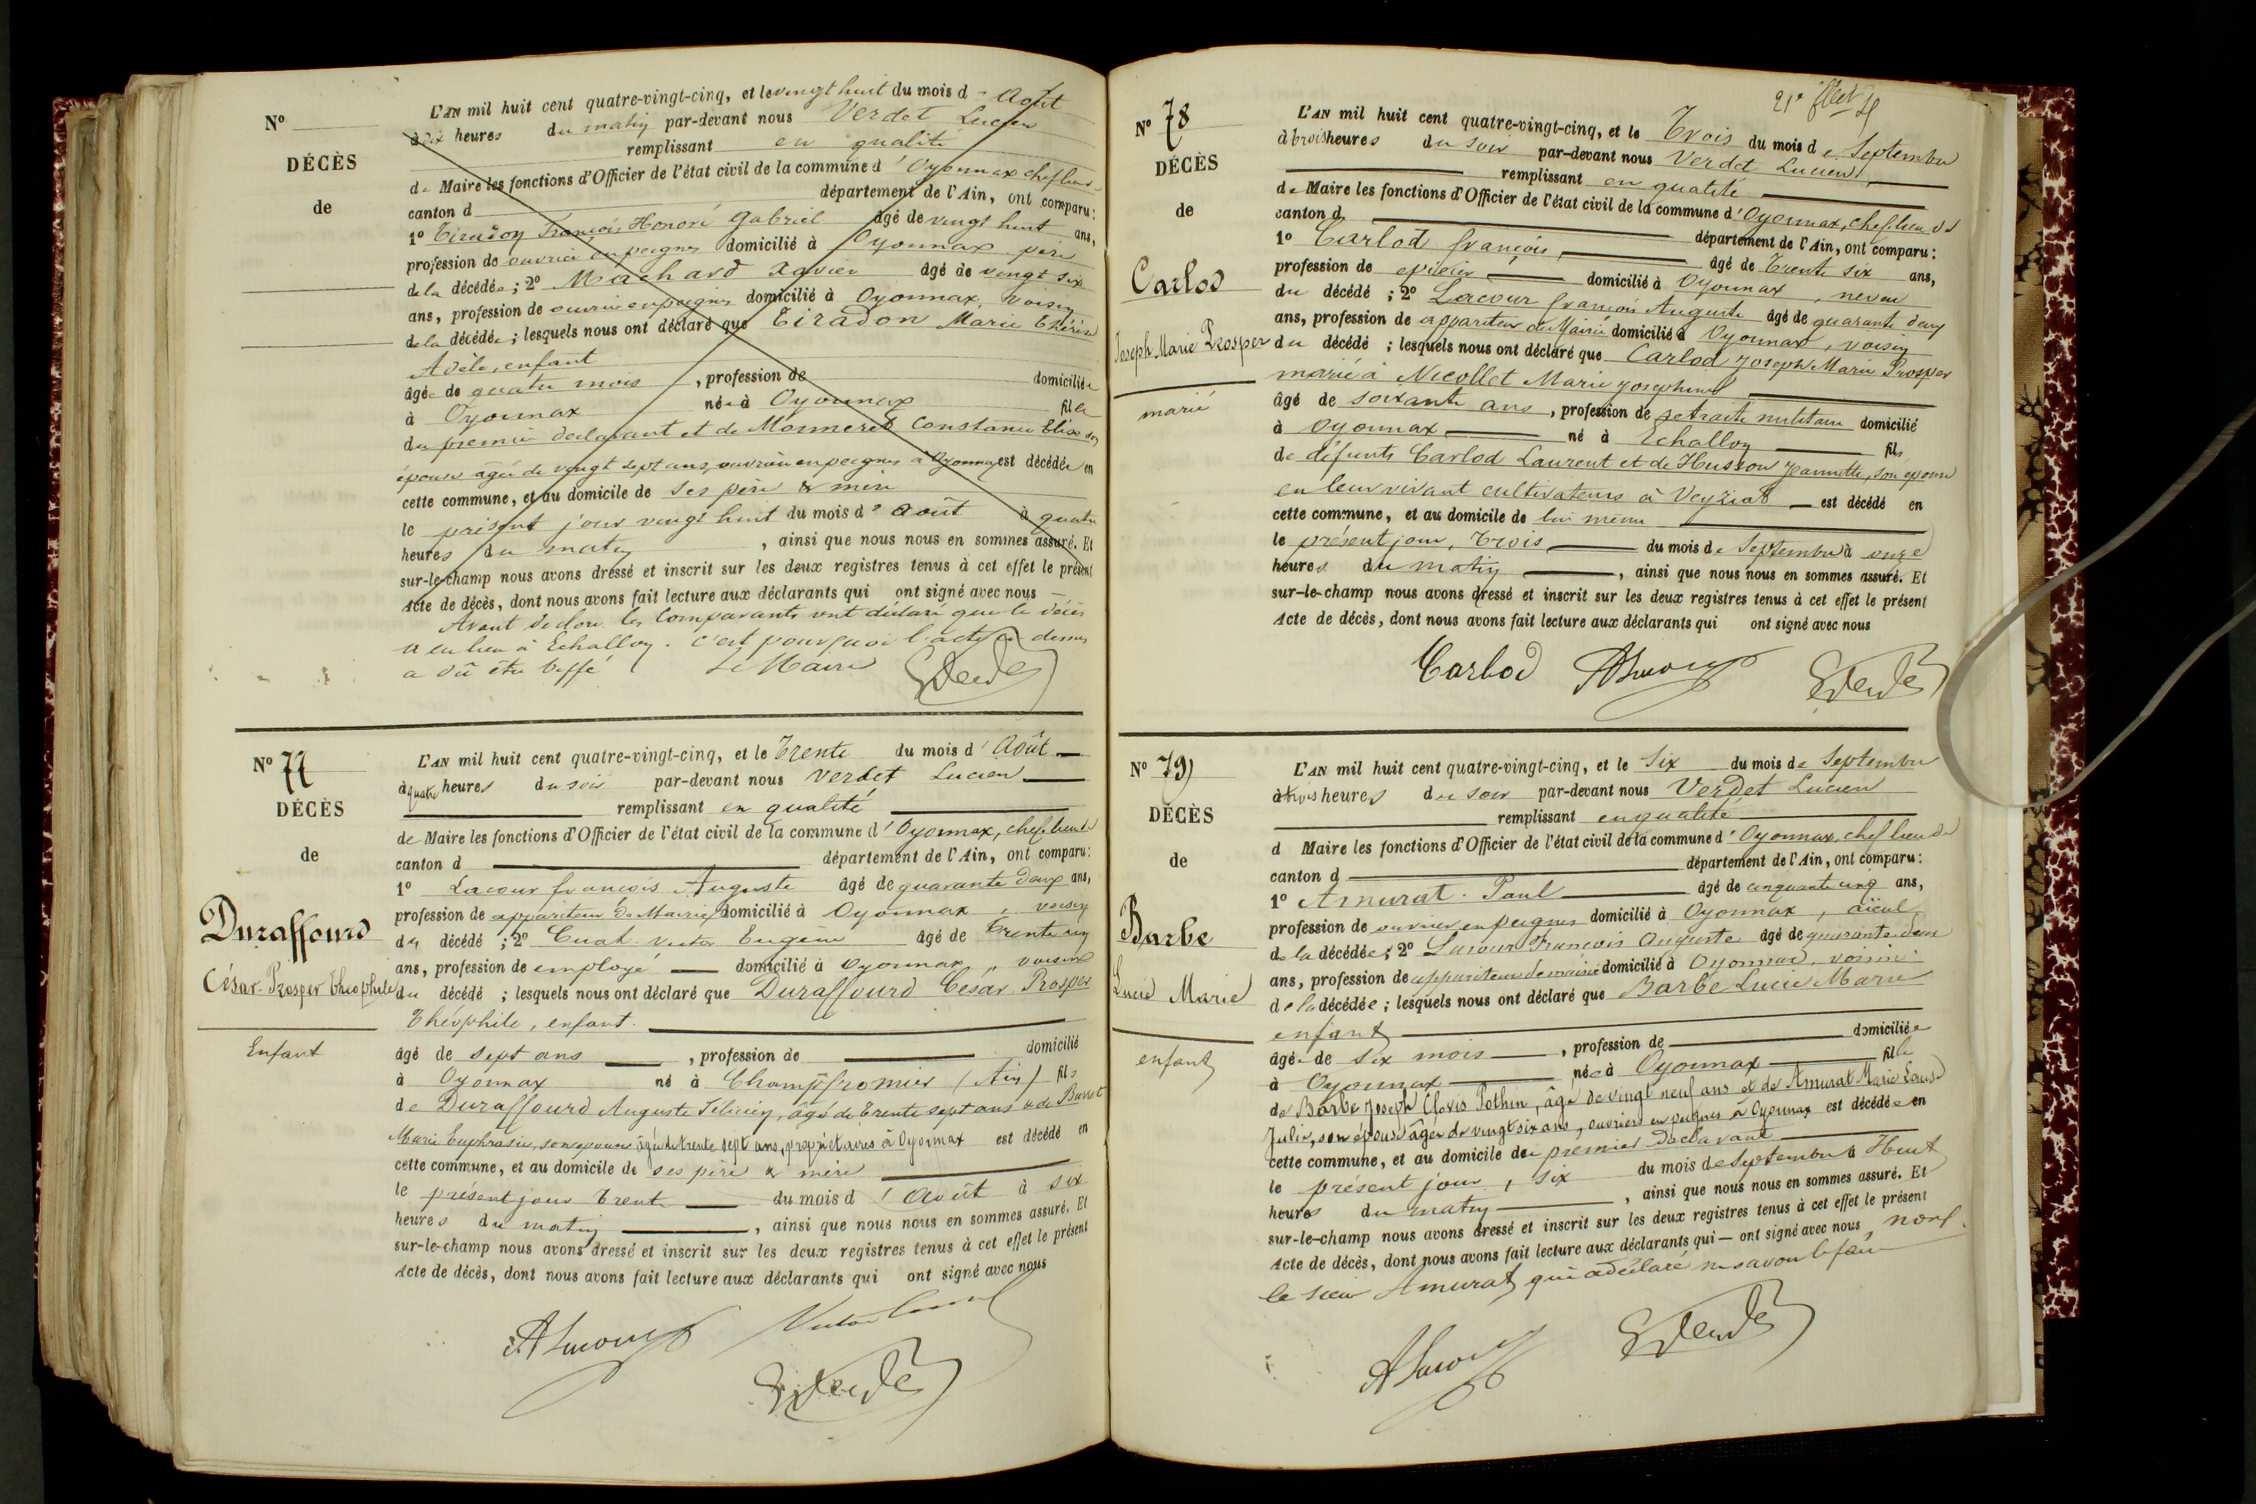 N°
DÉCÈS
de
L'AN mil huit cent quatre-vingt-cinq, et le vingt huit du mois d - Août
à dix heures du matin par-devant nous Verdet Lucien
remplissant en qualité
de Maire les fonctions d'Officier de l'état civil de la commune d' Oyonnax chef lieu
canton d département de l'Ain, ont comparu:
1° Tiradon François Honoré Gabriel âgé de vingt huit ans,
profession de ouvrier en peignes domicilié à Oyonnax père
de la décédée; 2° Machard Xavier âgé de vingt six
ans, profession de ouvrier en peignes domicilié à Oyonnax, voisin
de la décédée; lesquels nous ont déclaré que Tiradon Marie
Adèle, enfant
âgée de quatre mois, profession de domiciliée
à Oyonnax née à Oyonnax fille
du premier déclarant et de Monneret Constance Elise son
épouse âgée de vingt sept ans, ouvrière en peignes à Oyonnax est décédée en
cette commune, et au domicile de ses père & mère
le présent jour vingt huit du mois d' Août à quatre
heures du matin, ainsi que nous nous en sommes assuré. Et
sur-le-champ nous avons dressé et inscrit sur les deux registres tenus à cet effet le présent
Acte de décès, dont nous avons fait lecture aux déclarants qui ont signé avec nous
Avant de clore les comparants ont déclaré que le décès
a eu lieu à Echallon. C'est pourquoi l'acte ci dessus
a dû être biffé Le Maire
N° 77
DÉCÈS
de
Duraffourd
César-Prosper Théophile
Enfant
L'AN mil huit cent quatre-vingt-cinq, et le Trente du mois d' Août
à quatre heures du soir par-devant nous Verdet Lucien
remplissant en qualité
de Maire les fonctions d'Officier de l'état civil de la commune d' Oyonnax, chef lieu de
canton d département de l'Ain, ont comparu:
1° Lacour françois Auguste âgé de quarante deux ans,
profession de appariteur de Mairie domicilié à Oyonnax, voisin
du décédé; 2° Cuat Victor Eugène âgé de Trente cinq
ans, profession de employé domicilié à Oyonnax, voisin
du décédé; lesquels nous ont déclaré que Duraffourd César Prosper
Théophile, enfant.
âgé de sept ans, profession de domicilié
à Oyonnax né à Champfromier (Ain) fils
de Duraffourd Auguste Félicien, âgé de trente sept ans & de
Marie Euphrasie, son épouse âgée de trente sept ans, propriétaires à Oyonnax est décédé en
cette commune, et au domicile de ses père & mère
le présent jour trente du mois d' Août à six
heures du matin, ainsi que nous nous en sommes assuré. Et
sur-le-champ nous avons dressé et inscrit sur les deux registres tenus à cet effet le présent
Acte de décès, dont nous avons fait lecture aux déclarants qui ont signé avec nous
N° 78
DÉCÈS
de
Carlod
Joseph Marie Prosper
marié
L'AN mil huit cent quatre-vingt-cinq, et le Trois du mois de Septembre
à trois heures du soir par-devant nous Verdet Lucien
remplissant en qualité
de Maire les fonctions d'Officier de l'état civil de la commune d' Oyonnax, chef lieu de
canton d département de l'Ain, ont comparu:
1° Carlod françois âgé de Trente six ans,
profession de épicier domicilié à Oyonnax, neveu
du décédé; 2° Lacour françois Auguste âgé de quarante deux
ans, profession de appariteur de Mairie domicilié à Oyonnax, voisin
du décédé; lesquels nous ont déclaré que Carlod Joseph Marie Prosper
marié à Nicollet Marie Josephine
âgé de soixante ans, profession de retraité militaire domicilié
à Oyonnax né à Echallon fils
de défunts Carlod Laurent et de Husson Jeannette, son épouse
en leur vivant cultivateurs à Veyziat est décédé en
cette commune, et au domicile de lui même
le présent jour, Trois du mois de Septembre à onze
heures du matin, ainsi que nous nous en sommes assuré. Et
sur-le-champ nous avons dressé et inscrit sur les deux registres tenus à cet effet le présent
Acte de décès, dont nous avons fait lecture aux déclarants qui ont signé avec nous
Carlod
N° 79
DÉCÈS
de
Barbe
Lucie Marie
enfant
L'AN mil huit cent quatre-vingt-cinq, et le Six du mois de Septembre
à trois heures du soir par-devant nous Verdet Lucien
remplissant en qualité
d Maire les fonctions d'Officier de l'état civil de la commune d' Oyonnax, chef lieu de
canton d département de l'Ain, ont comparu:
1° Amurat Paul âgé de cinquante cinq ans,
profession de ouvrier en peignes domicilié à Oyonnax, aïeul
de la décédée; 2° Lacour François Auguste âgé de quarante deux
ans, profession de appariteur de mairie domicilié à Oyonnax, voisin
de la décédée; lesquels nous ont déclaré que Barbe Lucie Marie
enfant
âgée de six mois, profession de domiciliée
à Oyonnax née à Oyonnax fille
de Barbe Joseph Clovis Pothin, âgé de vingt neuf ans et de Amurat Marie Louise
Julie, son épouse âgée de vingt six ans, ouvriers en peignes à Oyonnax est décédée en
cette commune, et au domicile du premier déclarant
le présent jour, six du mois de Septembre à Huit
heures du matin, ainsi que nous nous en sommes assuré. Et
sur-le-champ nous avons dressé et inscrit sur les deux registres tenus à cet effet le présent
Acte de décès, dont nous avons fait lecture aux déclarants qui — ont signé avec nous non
le sieur Amurat qui a déclaré ne savoir le faire